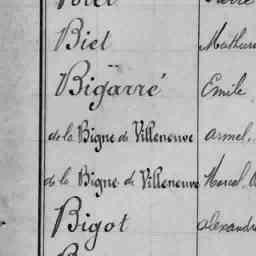 Biet Mathur
Bigarré Emile
de la Bigne de Villeneuve Armel.
de la Bigne de Villeneuve Marcel
Bigot Alexandre